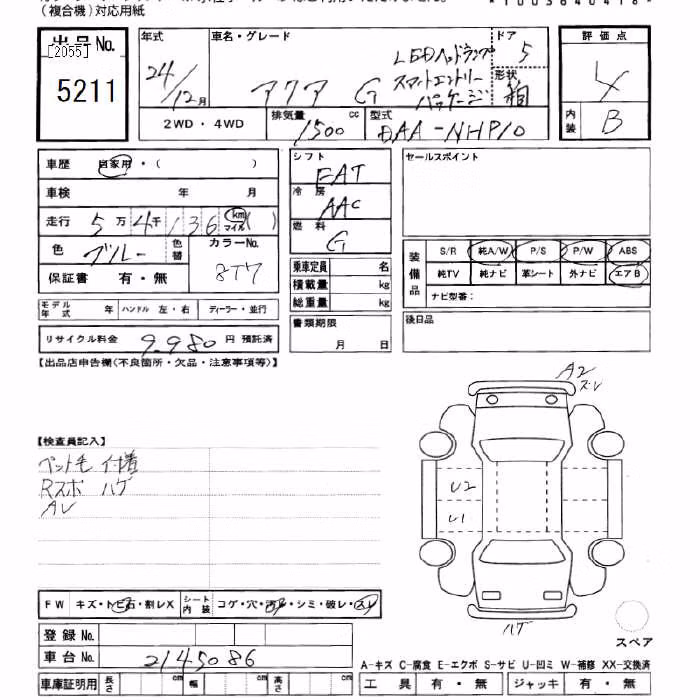 (複合機)対応用紙
出品No.
[2055]
5211
年式
24/12月
車名・グレード
アクア G
LEDヘッドランプ
スマートエントリー
パッケージ
ドア
5
形状
箱
2WD・4WD
排気量 1500 cc
型式 DAA-NHP10
評価点
4
内装 B
車歴 自家用・( )
車検 年 月
走行 5万4千136 km マイル( )
色 ブルー 色替 カラーNo. 8T7
保証書 有・無
モデル年式 年 ハンドル 左・右 ディーラー・並行
リサイクル料金 9,980円 預託済
シフト
FAT
冷房
AAC
燃料
G
乗車定員 名
積載量 kg
総重量 kg
書類期限
月 日
セールスポイント
装備品
S/R 純A/W P/S P/W ABS
純TV 純ナビ 革シート 外ナビ エアB
ナビ型番:
後日品
【出品店申告欄(不良箇所・欠品・注意事項等)】
【検査員記入】
ペット毛 付着
Rスポ ハゲ
AU
A2
ズレ
U2
U1
ハゲ
スペア
FW キズ・トビ石・割レX シート内装 コゲ・穴・汚レ・シミ・破レ・スレ
登録No.
車台No. 2145086
車庫証明用 長さ cm 幅 cm 高さ cm
A-キズ C-腐食 E-エクボ S-サビ U-凹ミ W-補修 XX-交換済
工具 有・無 ジャッキ 有・無